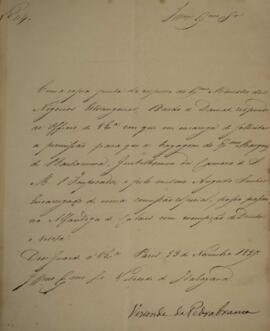 Illmo. Exmo. Sr.
É uma copia junta da resposta do Exmo. Ministro dos
Negocios Estrangeiros, Barão de Damas, respondo
ao Officio de V. Exa. em que me encarrega de solicitar
a permissão para que a bagagem do Exmo. Marquez
de Gentilhomem da Camara de S.
M. I. Imperador, e pelo mesmo Augusto Senhor
encarregado de uma commissão especial, possa passar
na Alfandega de Calais com isempção de direitos
e visita.
Deos Guarde a V. Exa. Paris 23 de Novembro 1827.
Illmo. Exmo. Sr. Visconde de Itabayana
Visconde da Pedra branca